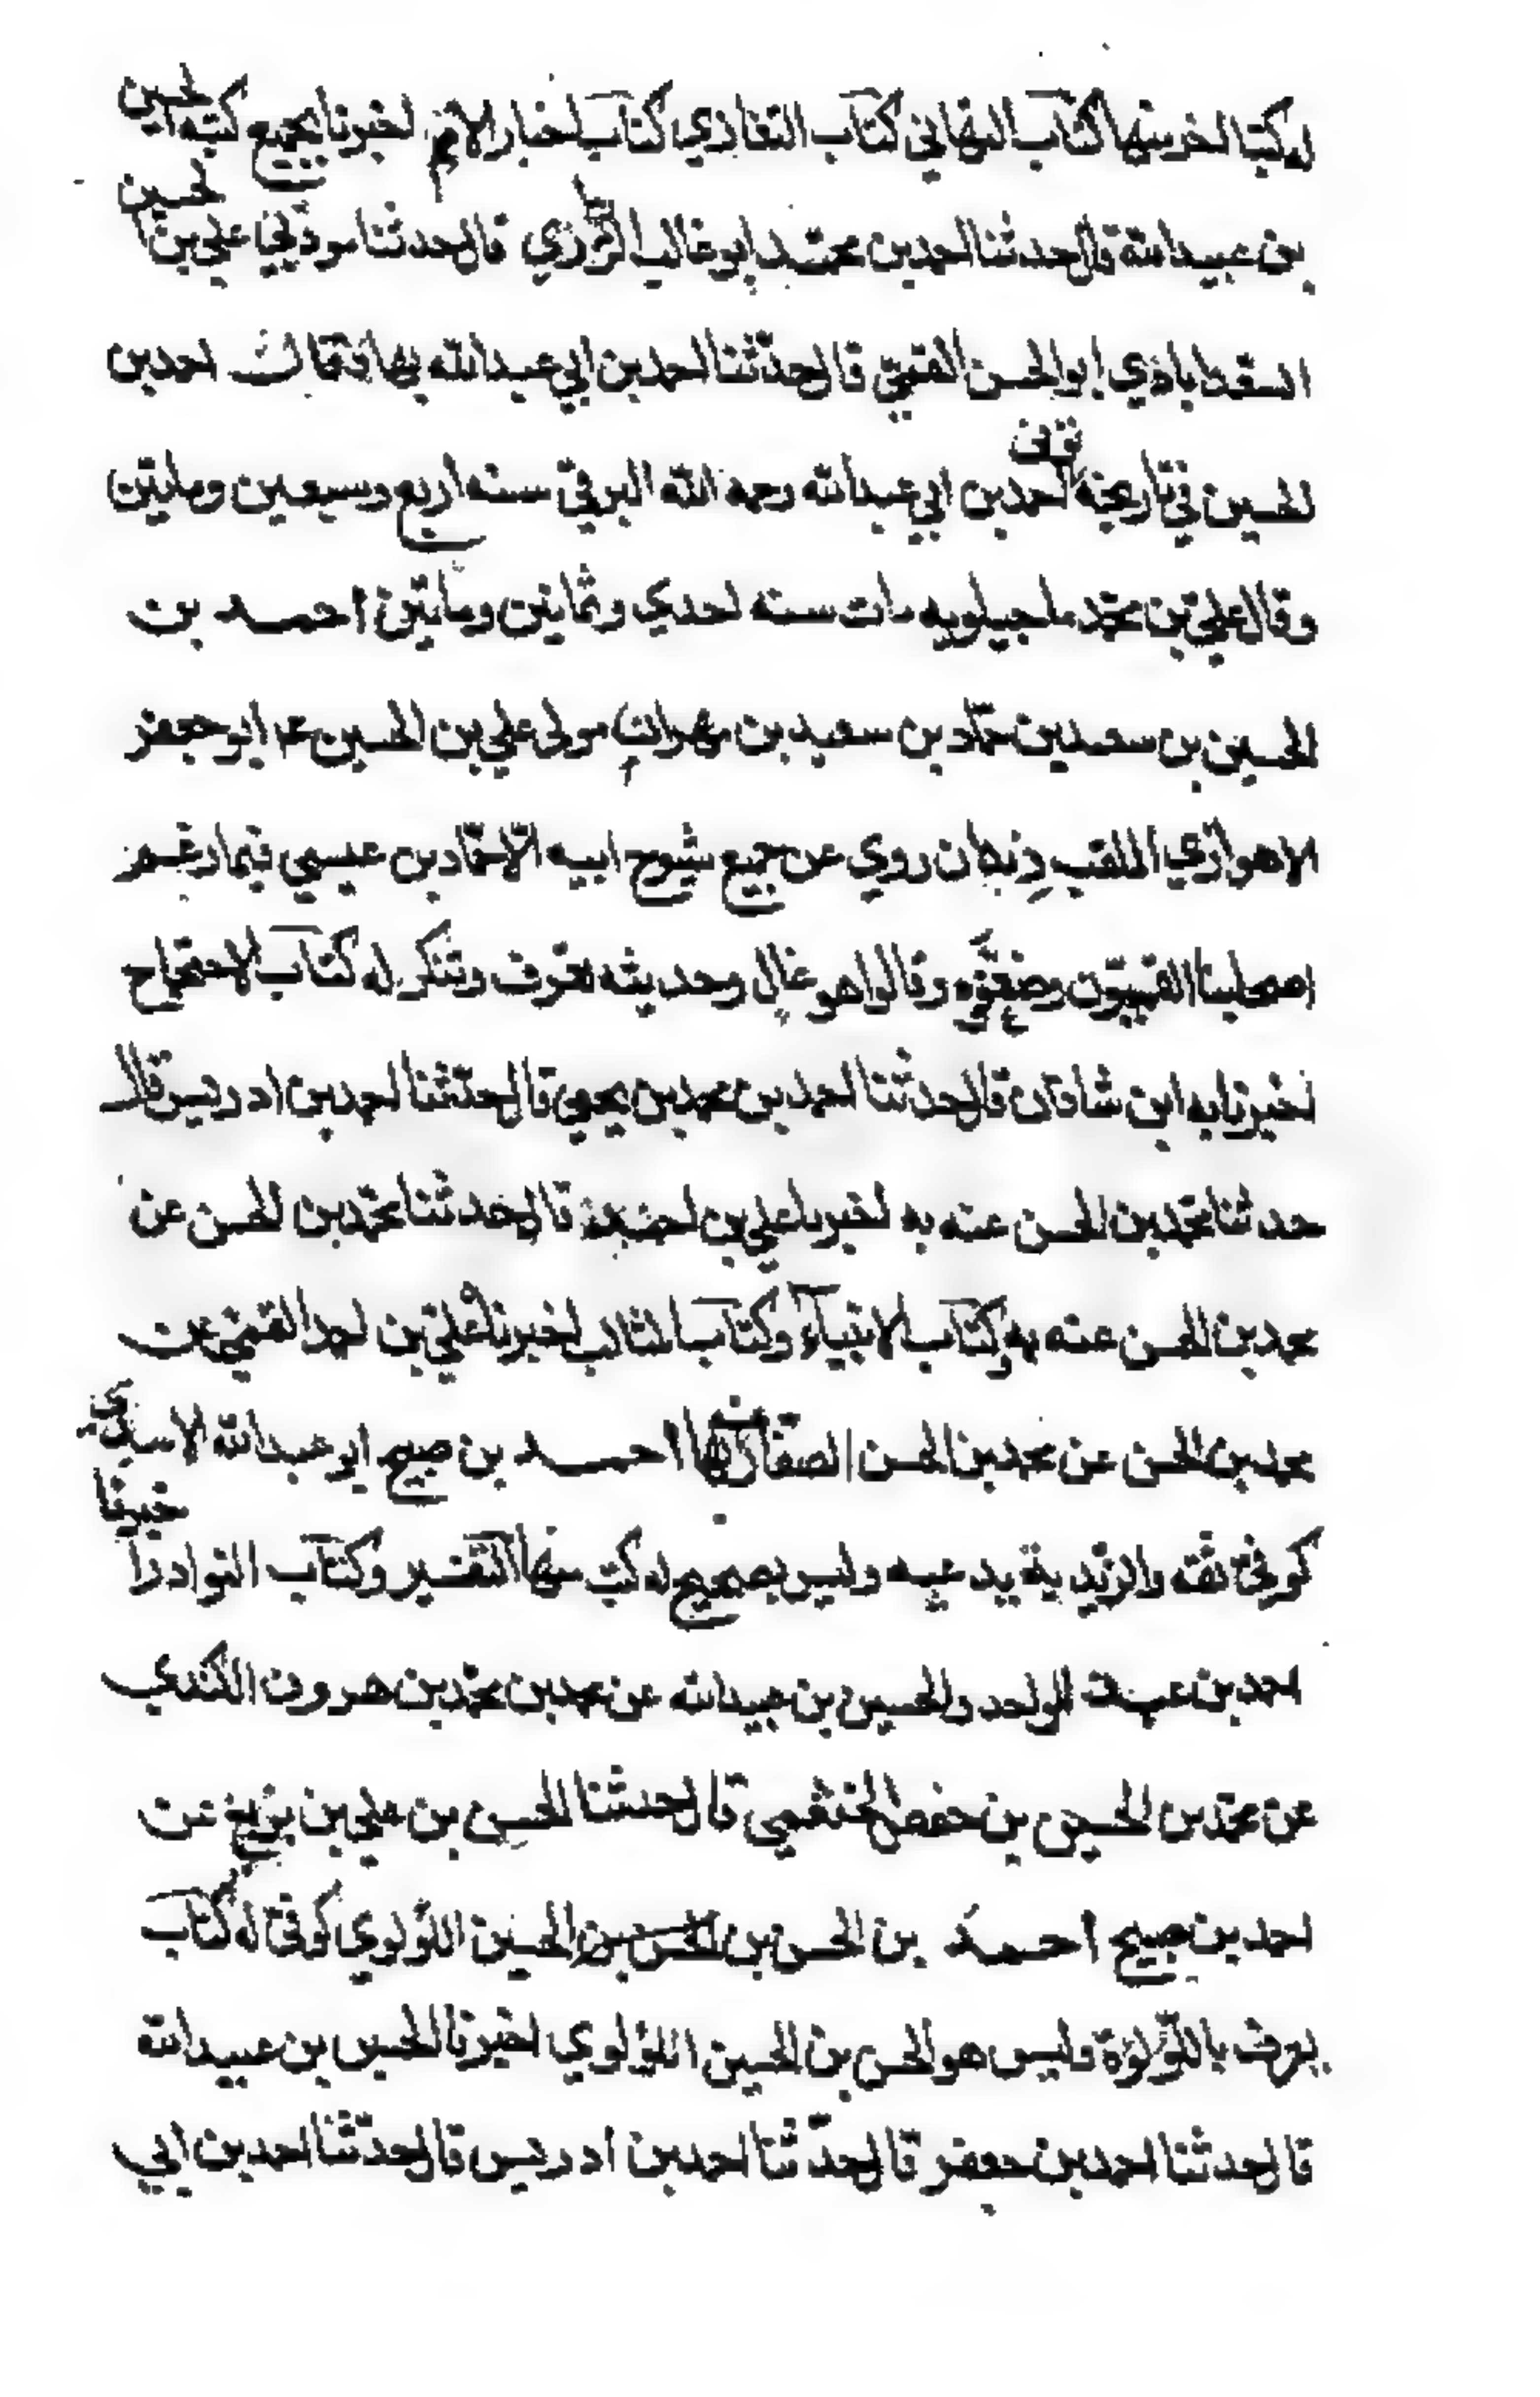 له كتبا اخر منها كتاب التهاني كتاب التعازي كتاب اخبار الامم اخبرنا بجميع كتبه الحسين
بن عبيد الله قال حدثنا احمد بن محمد ابو غالب الزراري قال حدثنا مودبي علي بن الحسين
السعدابادي ابو الحسن القمي قال حدثنا احمد بن ابي عبد الله بها وقال احمد بن
الحسين في تاريخه توفي احمد بن ابي عبد الله رحمه الله البرقي سنه اربع وسبعين ومايتين
وقال علي بن محمد ماجيلويه مات سنه احدي وثمانين ومايتين احمد بن
الحسين بن سعيد بن حماد بن سعيد بن مهران مولى علي بن الحسين ابو جعفر
الاهوازي الملقب دندان روي عن جميع شيوخ ابيه الا حماد بن عيسي فيما زعم
اصحابنا القميون وضعفوه وقالوا هو غال وحديثه يعرف وينكر له كتاب الاحتجاج
اخبرنا به ابن شاذان قال حدثنا احمد بن محمد بن يحيى قال حدثنا احمد بن ادريس قال
حدثنا محمد بن الحسن عنه به اخبرنا علي بن احمد قال حدثنا محمد بن الحسن عن
محمد بن الحسن عنه به وكتاب الانبياء وكتاب المثالب اخبرنا علي بن احمد القمي عن
محمد بن الحسن عن محمد بن الحسن الصفار عنه بها احمد بن صبيح ابو عبد الله الاسدي
كوفي ثقه والزيدية يدعيه وليس بصحيح له كتب منها التفسير وكتاب النوادر اخبرنا
احمد بن عبد الواحد والحسين بن عبيد الله عن محمد بن محمد بن هرون الكندي
عن محمد بن الحسين بن حفص الخثعمي قال حدثنا الحسن بن علي بن بزيع عن
احمد بن صبيح احمد بن الحسن بن الحسين اللؤلوي كوفي له كتاب
يعرف باللؤلؤة وليس هو الحسن بن الحسين اللؤلوي اخبرنا الحسين بن عبيد الله
قال حدثنا احمد بن جعفر قال حدثنا احمد بن ادريس قال حدثنا احمد بن ابي